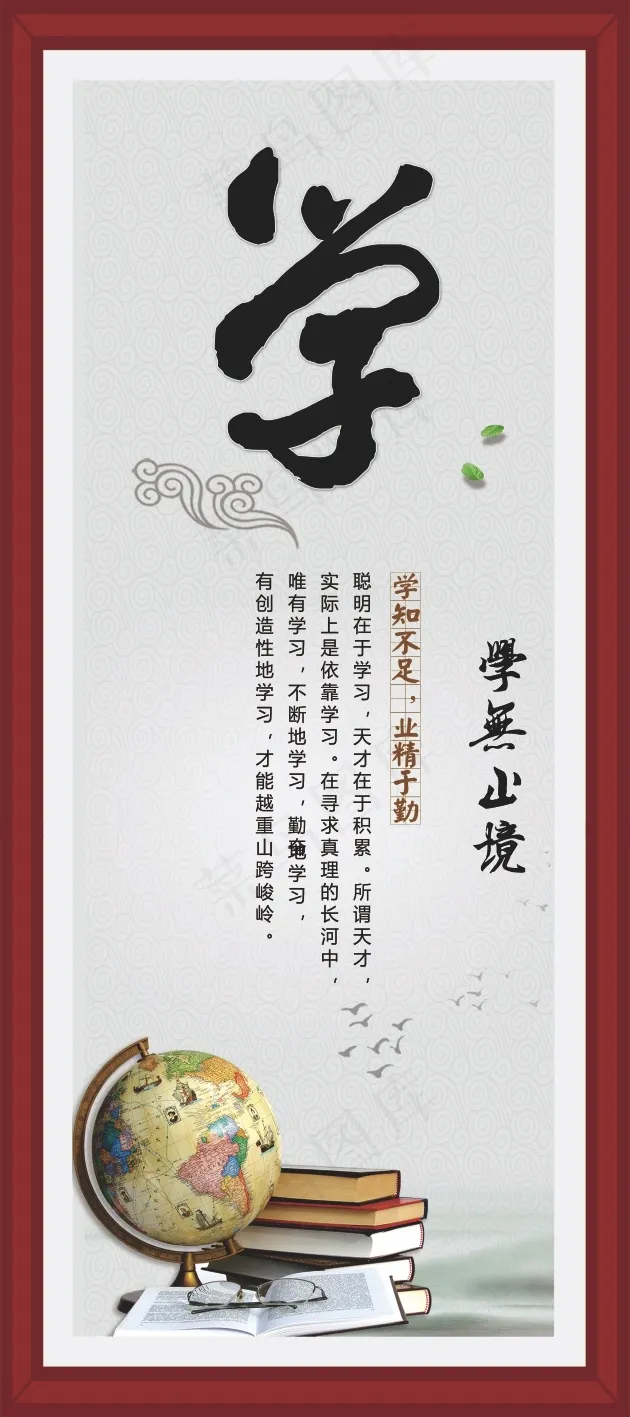 学
學無止境
学知不足，业精于勤
聪明在于学习，天才在于积累。所谓天才，
实际上是依靠学习。在寻求真理的长河中，
唯有学习，不断地学习，勤奋地学习，
有创造性地学习，才能越重山跨峻岭。
菜鸟图库